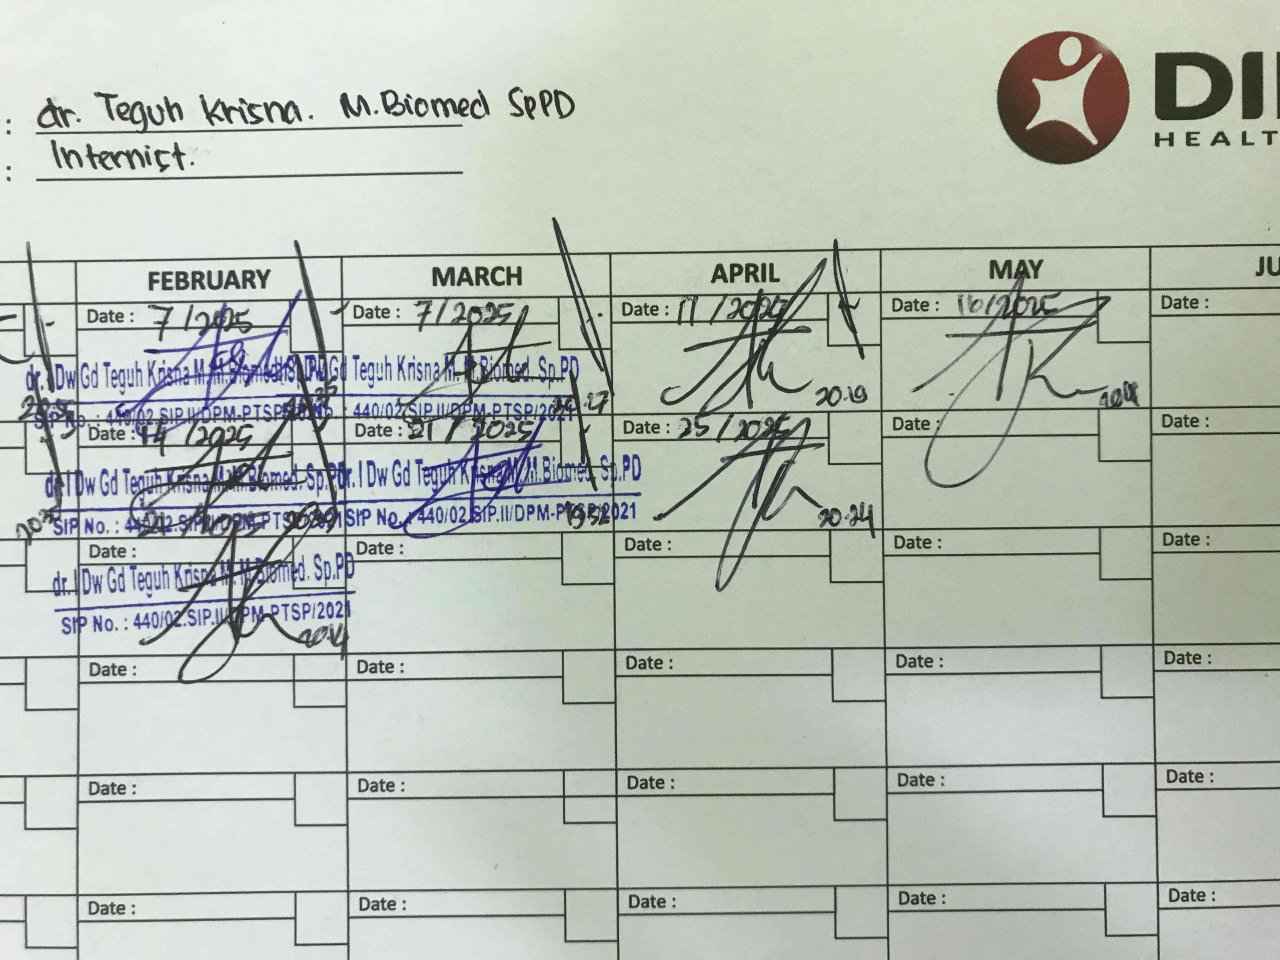 : dr. Teguh Krisna. M.Biomed SpPD
: Internist.
DI
HEALT
FEBRUARY MARCH APRIL MAY JU
Date : 7/2025 Date : 7/2025 Date : 11/2025 Date : 16/2025 Date :
dr. I Dw Gd Teguh Krisna M. M.Biomed. Sp.PD
Gd Teguh Krisna M. M.Biomed. Sp.PD
20.19
SIP No. : 440/02.SIP.II/DPM-PTSP/
: 440/02.SIP.II/DPM-PTSP/2021
Date : 14/2025 Date : 21/2025 Date : 25/2025 Date : Date :
dr. I Dw Gd Teguh Krisna M. M.Biomed. Sp.PD
dr. I Dw Gd Teguh Krisna M. M.Biomed. Sp.PD
SIP No. : 440/02.SIP.II/DPM-PTSP/2021
SIP No. : 440/02.SIP.II/DPM-PTSP/2021
20.24
21/2025
Date : Date : Date : Date : Date :
dr. I Dw Gd Teguh Krisna M. M.Biomed. Sp.PD
SIP No. : 440/02.SIP.II/DPM-PTSP/2021
Date : Date : Date : Date : Date :
Date : Date : Date : Date : Date :
Date : Date : Date : Date : Date :